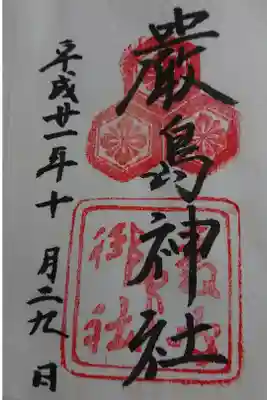 嚴島神社
平成廿一年十月二九日